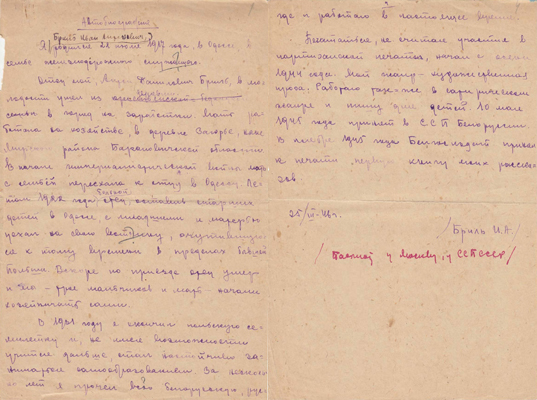 Автобиография
(Брыль Иван Антонович)
Я родился 22 июля 1917 года, в Одессе, в
семье железнодорожного служащего.
Отец мой, Антон Данилович Брыль, в мо-
лодости ушел из
в город на заработки. Мать ра-
ботала на хозяйстве, в деревне Загорье,
Мирского района Барановичской области.
В начале империалистической войны мать
с семьей переехала к отцу в Одессу. Ле-
том 1922 года отец, оставив старших
детей в Одессе, с младшими и матерью
уехал на свою, очутившуюся
к тому времени в пределах бывшей
Польши. Вскоре по приезде отец умер
и мы - двое мальчиков и мать - начали
хозяйничать сами.
В 1931 году я окончил польскую се-
милетку и, не имея возможности
учиться дальше, стал настойчиво за-
ниматься самообразованием. За несколько
лет я прочел всю белорусскую, рус-
где и работаю в настоящее время.
Печататься, не считая участия в
партизанской печати, начал с осени
1944 года. Мой жанр - художественная
проза. Работаю также в сатирическом
жанре и пишу для детей. 10 мая
1945 года принят в ССП Белоруссии.
В ноябре 1945 года Белгосиздат принял
к печати первую книгу моих расска-
зов.
25/II-46 г.
/Брыль И.А/
/Пасланы у Маскву, у ССП СССР/